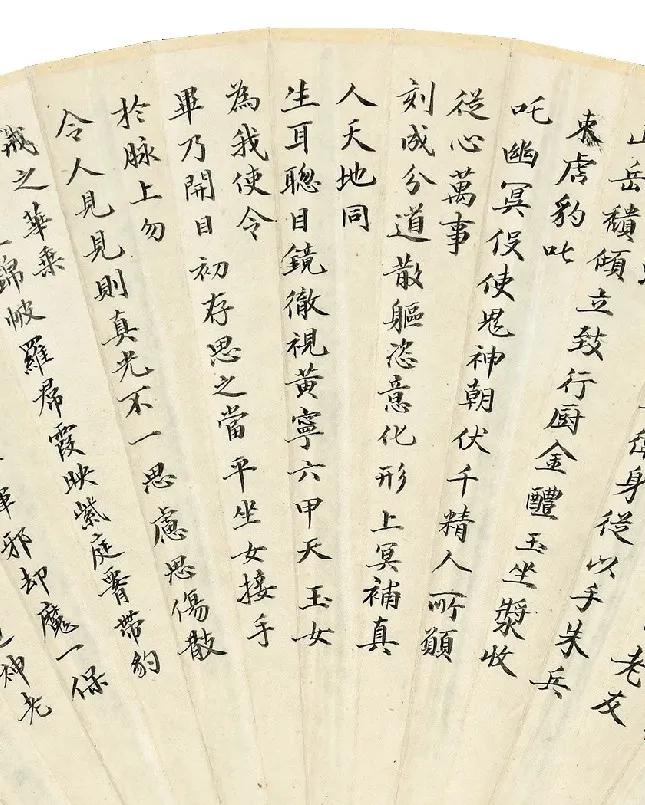 老友
身從以手朱兵
山岳穨傾立致行厨金醴玉坐漿收
虎豹叱
吒幽冥役使鬼神朝伏千精人所願
從心萬事
刻成分道散軀恣意化形上冥補真
人天地同
生耳聰目鏡徹視黃寧六甲天玉女
為我使令
畢乃開目初存思之當平坐女接手
於脉上勿
令人見見則真光不一思慮思傷散
戒之華乘
錦帔羅帬霞映紫庭腎帶豹
邪却魔一保
神老